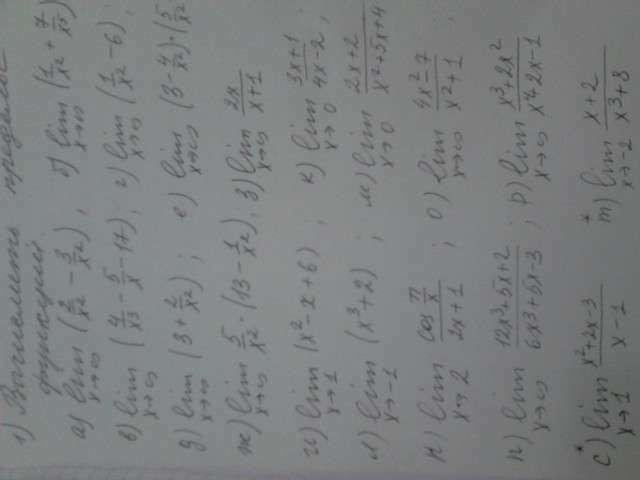 1) Вычислить пределы
функций
а) lim x→∞ (2/x² − 3/x²); б) lim x→∞ (1/x² + 7/x³)
в) lim x→∞ (4/x³ − 5/x − 17); г) lim x→∞ (1/x² − 6);
д) lim x→∞ (3 + 2/x²); е) lim x→∞ (3 − 4/x²)·(5/x²
ж) lim x→∞ 5/x² · (13 − 1/x²); з) lim x→∞ 2x/(x+1)
и) lim x→1 (x² − x + 6); к) lim x→0 (3x+1)/(4x−2);
л) lim x→−1 (x³ + 2); м) lim x→0 (2x+2)/(x²+5x+4)
н) lim x→2 (cos π/x)/(2x+1); о) lim x→∞ (4x²−7)/(x²+1);
п) lim x→∞ (12x³+5x+2)/(6x³+5x−3); р) lim x→∞ (x³+2x²)/(x⁴+2x−1)
с*) lim x→1 (x²+2x−3)/(x−1) т*) lim x→−2 (x+2)/(x³+8)